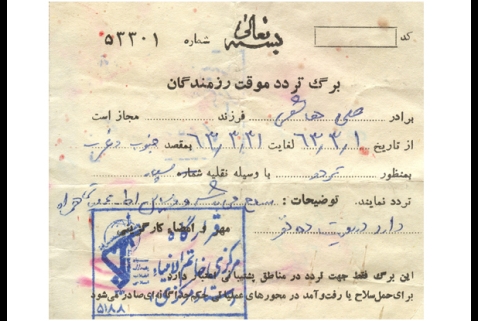 کد بسمه تعالی شماره ۵۳۳۰۱
برگ تردد موقت رزمندگان
برادر علی هاشمی فرزند مجاز است
از تاریخ ۶۳٫۳٫۱ لغایت ۶۳٫۳٫۳۱ بمقصد جنوب و غرب
بمنظور تردد با وسیله نقلیه شماره
تردد نمایند. توضیحات :
دارد
مهر و امضاء کارگزینی
قرارگاه
مرکزی خاتم الانبیاء
این برگ فقط جهت تردد در مناطق پشتیبانی اعتبار دارد
برای حمل سلاح یا رفت و آمد در محورهای عملیاتی حکم جداگانه‌ای صادر می‌شود
۵۱۸۸